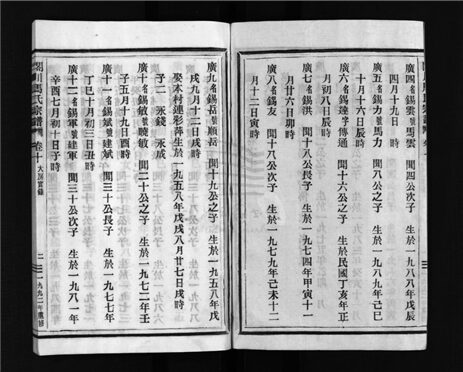 廣四 名錫雲 號馬雲 聞四公次子 生於一九八八年戊辰
四月十九日 時
廣五 名錫力 號馬力 聞八公之子 生於一九八九年己巳
十月十六日辰時
廣六 名錫達 號傳通 聞十六公之子 生於民國丁亥年正
月初八日辰時
廣七 名錫洪 聞十八公長子 生於一九七四年甲寅十一
月廿六日卯時
廣八 名錫友 聞十八公次子 生於一九七九年己未十二
月十二日寅時
廣九 名錫岳 號順岳 聞十九公之子 生於一九五八年戊
戌九月十二日戌時
娶木村連彩萍生於一九五八年戊戌八月廿七日戌時
子二 永 永威
廣十 名錫敏 號曉敏 聞二十公之子 生於一九七二年壬
子五月十九日酉時
廣十一 名錫斌 號建斌 聞三十公長子 生於一九七七年
丁巳十月初三日丑時
廣十二 名錫軍 號建軍 聞三十公次子 生於一九八一年
辛酉七月初十日子時
閣川馬氏宗譜 卷十 大房實錄 二 一九九二年